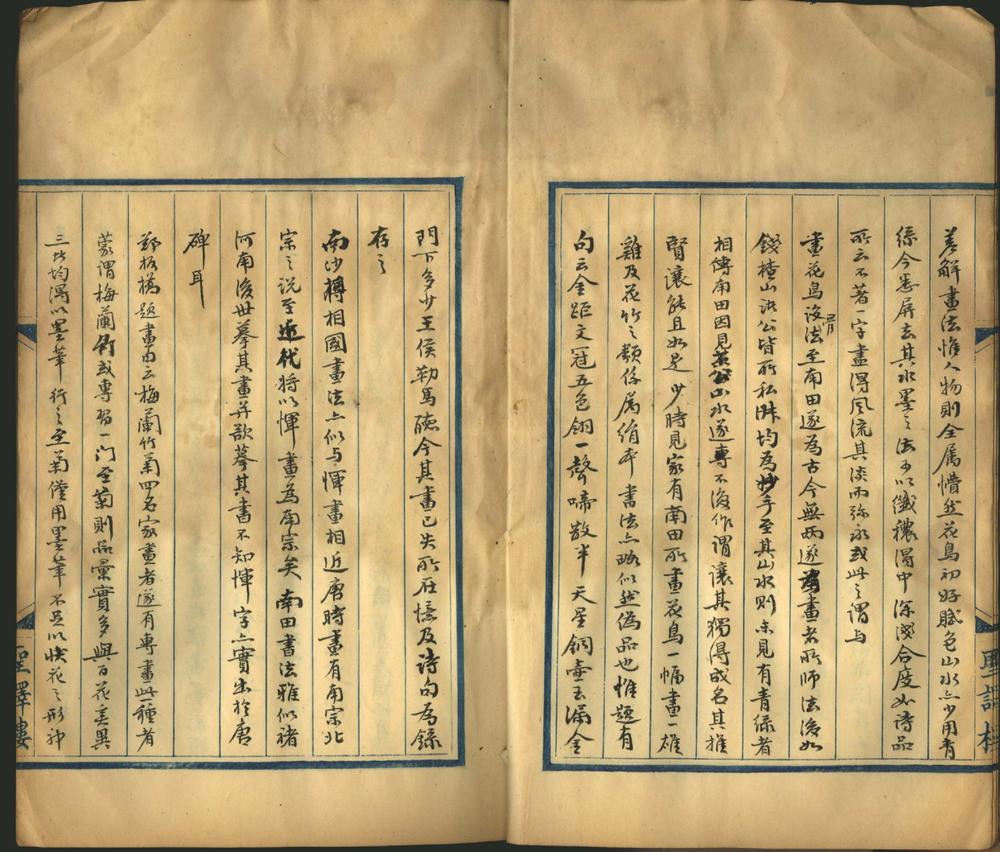 差解畫法惟人物則全属懵然花鳥初好賦色山水亦少用青
綠今悉屏去其水墨之法可以纖穠得中深淺合度如詩品
所云不著一字盡得風流其淡而弥永或此之謂与
畫花鳥没骨法至南田遂為古今無兩遂畫者所師法後如
錢楂山洪公皆所私淑均為妙手至其山水則未見有青綠者
相傳南田因見山水遂專不復作謂讓其獨得成名其推
賢讓能且如是少時見家有南田所畫花鳥一幅畫一雄
雞及花竹之類係属絹本書法亦略似然偽品也惟題有
句云金距文冠五色翎一聲啼散半天星銅壺玉漏金
門下多少王侯勒馬聽今其畫已失所在憶及詩句為錄
存之
南沙相國畫法亦似与惲畫相近唐時畫有南宗北
宗之説至近代将以惲畫為南宗矣南田書法雅似褚
河南後世摹其畫并欲摹其書不知惲字亦實出於唐
碑耳
鄭板橋題畫内云梅蘭竹菊四名家畫者遂有專畫此一種者
蒙謂梅蘭竹或專習一门至菊則品彙實多與百花美異
三者均得以墨筆行之至菊僅用墨筆不足以状花之形神